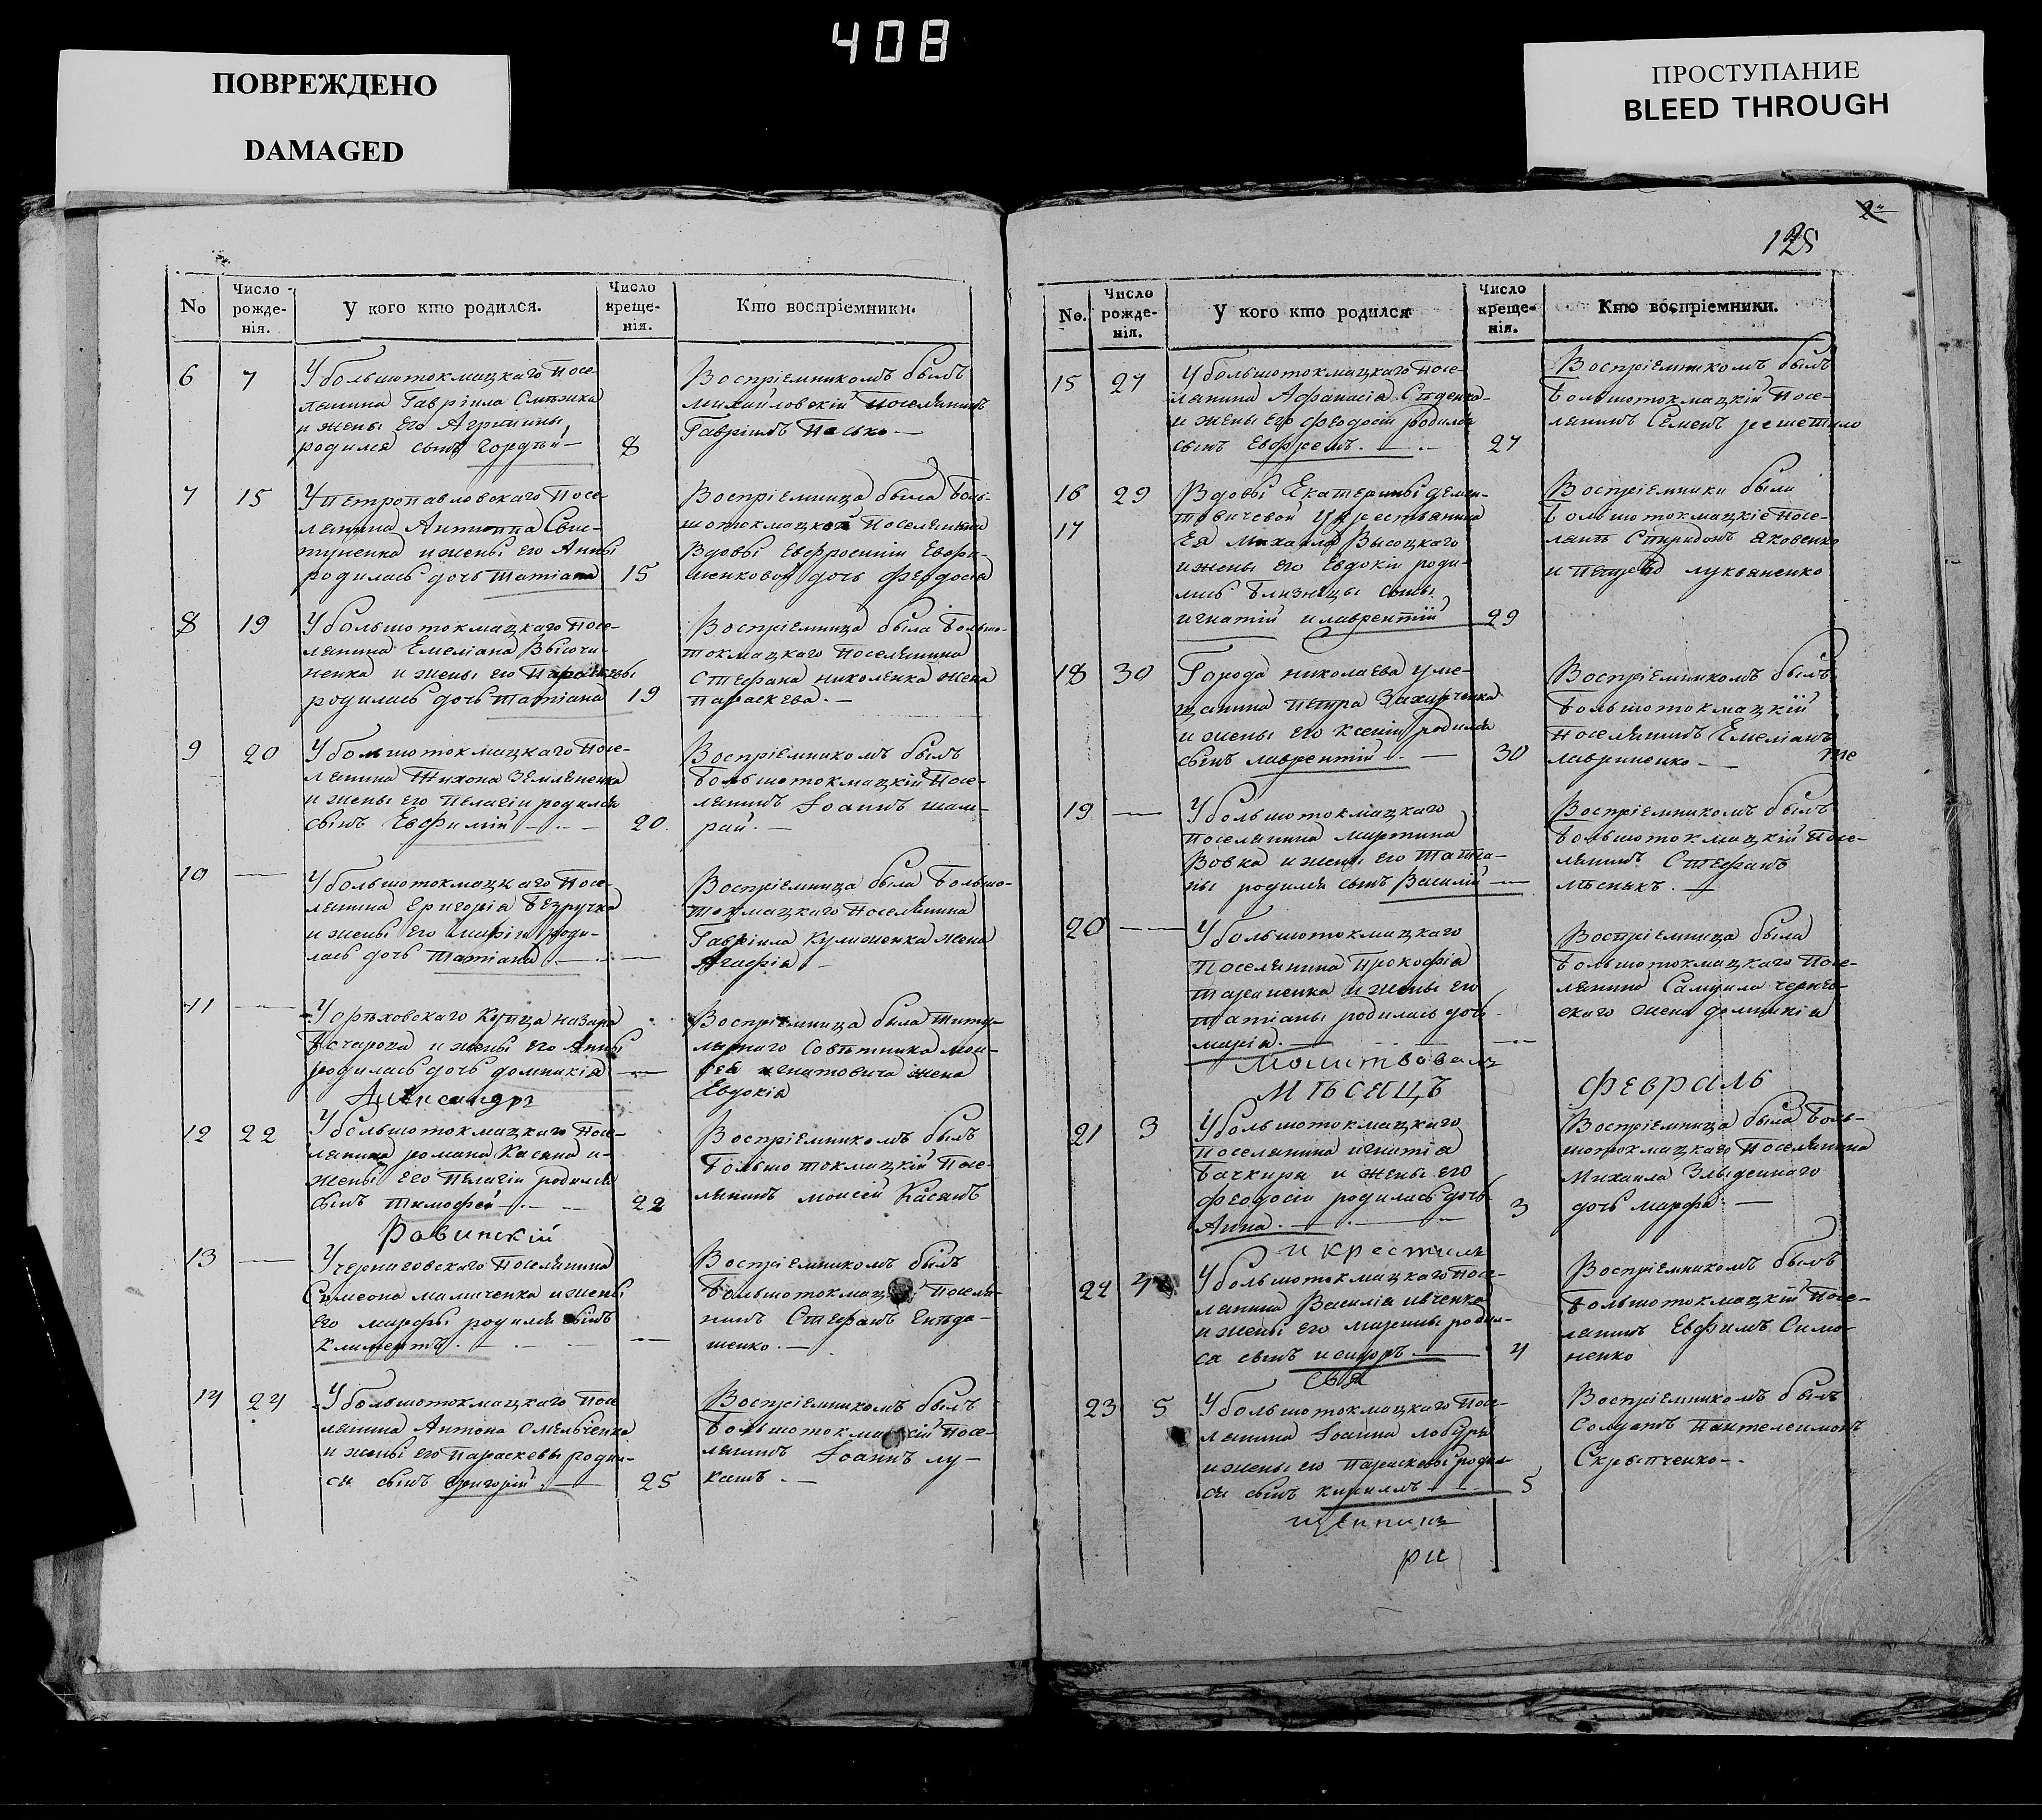 408
ПОВРЕЖДЕНО
DAMAGED
ПРОСТУПАНИЕ
BLEED THROUGH
No
Число рожде-нія.
У кого кто родился.
Число креще-нія.
Кто воспріемники.
6 7
У большотокмацкаго посе-
лянина Гавріила
и жены его Агрипины
родился сынъ Гордѣй 8
Воспріемникомъ былъ
михайловскій поселянинъ
Гавріилъ Пасько
7 15
У петропавловскаго посе-
лянина Антипа Свис-
туненка и жены его Анны
родилась дочь татіана 15
Воспріемница была боль-
шотокмацкой поселянки
Вдовы Евфросиніи Евфи-
менковой дочь феодосія
8 19
У большотокмацкаго посе-
лянина Емеліана Высочи-
ненка и жены его Параскевы
родилась дочь татіана 19
Воспріемница была больше-
токмацкаго поселянина
Стефана николенка жена
параскева.
9 20
У большотокмацкаго посе-
лянина Тихона Земляненка
и жены его пелагіи родился
сынъ Евфимій 20
Воспріемникомъ былъ
большотокмацкій посе-
лянинъ Іоаннъ шам-
рай.
10 —
У большотокмацкаго посе-
лянина григорія безручка
и жены его маріи роди-
лась дочь татіана —
Воспріемница была больше-
токмацкаго поселянина
Гавріила Кулиженка жена
Агафія
11 —
У орѣховскаго Купца назара
бочарова и жены его Анны
родилась дочь домникія —
Александръ
Воспріемница была титу-
лярнаго Совѣтника мои-
сея игнатовича жена
Евдокія
12 22
У большотокмацкаго посе-
лянина романа Касяна и
жены его Пелагіи родился
сынъ тимофей 22
Равинскій
Воспріемникомъ былъ
большотокмацкій посе-
лянинъ моисей Касянъ
13 —
У черниговскаго поселянина
Симеона маличенка и жены
его марфы родился сынъ
Климентъ. —
Воспріемникомъ былъ
большотокмацкій поселя-
нинъ Стефанъ
шенко.
14 24
У большотокмацкаго посе
лянина Антона Омельченка
и жены его параскевы родил-
ся сынъ григорій 25
Воспріемникомъ былъ
большотокмацкій посе-
лянинъ Іоаннъ лу-
кашъ.
125
No.
Число рожде-нія.
У кого кто родился
Число креще-нія.
Кто воспріемники.
15 27
У большотокмацкаго посе-
лянина Афанасія
и жены его феодосіи родился
сынъ Евфремъ. 27
Воспріемникомъ былъ
большотокмацкій посе-
лянинъ Семенъ решетило
16 29
17
Вдовы Екатерины демен-
товичевой у крестьянина
Ея михаила Высоцкаго
и жены его Евдокіи роди-
лись близнецы сыны
игнатій и лаврентій 29
Воспріемники были
большотокмацкіе посе-
ляне Спиридонъ Яковенко
и петръ лукьяненко
18 30
Города николаева у ме-
щанина петра Захарченка
и жены его ксеніи родился
сынъ лаврентій. 30
Воспріемникомъ былъ
большотокмацкій
поселянинъ Емеліанъ
лавриненко
19 —
У большотокмацкаго
поселянина мартина
Вовка и жены его татіа-
ны родился сынъ Василій —
Воспріемникомъ былъ
большотокмацкій посе-
лянинъ Стефанъ
лѣсникъ.
20 —
У большотокмацкаго
поселянина Прокофія
тараненка и жены его
татіаны родилась дочь
марія. —
Молитвовалъ
Воспріемница была
большотокмацкаго посе-
лянина Самуила чернев-
скаго жена домникія
МѢСЯЦЪ
февраль
21 3
У большотокмацкаго
поселянина игнатія
бачкиры и жены его
феодосіи родилась дочь
Анна. 3
и крестилъ
Воспріемница была боль-
шотокмацкаго поселянина
Михаила Злыденнаго
дочь марфа
22 4
У большотокмацкаго посе-
лянина Василія ивченка
и жены его марины родил-
ся сынъ исидоръ 4
Свя
Воспріемникомъ былъ
большотокмацкій посе-
лянинъ Евфимъ Симо-
ненко
23 5
У большотокмацкаго посе-
лянина Іоанна лобура
и жены его параскевы родил-
ся сынъ кириллъ 5
щенникъ
Воспріемникомъ былъ
Солдатъ пантелеимонъ
Скрыпченко